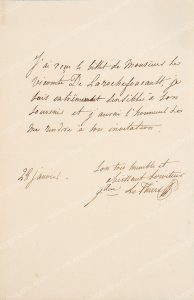 J'ai reçu le billet de Monsieur le
vicomte De Larochefoucault, je
suis extrêmement sensible à son
souvenir et j'aurai l'honneur de
me rendre à son invitation.
28 janvier.
Son très humble et
obéissant serviteur